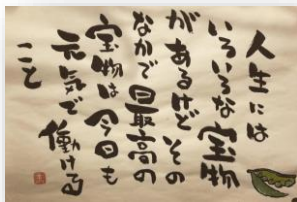 人生には
いろいろな宝物
があるけど その
なかで最高の
宝物は今日も
元気で働ける
こと